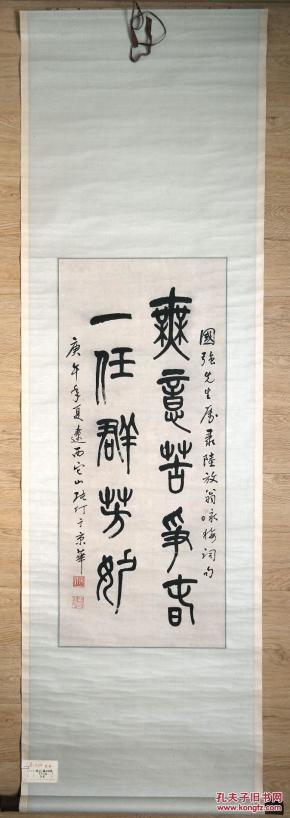 國強先生屬录陸放翁咏梅词句
無意苦爭春
一任群芳妒
庚午年夏遼西
山
于京華
孔夫子旧书网